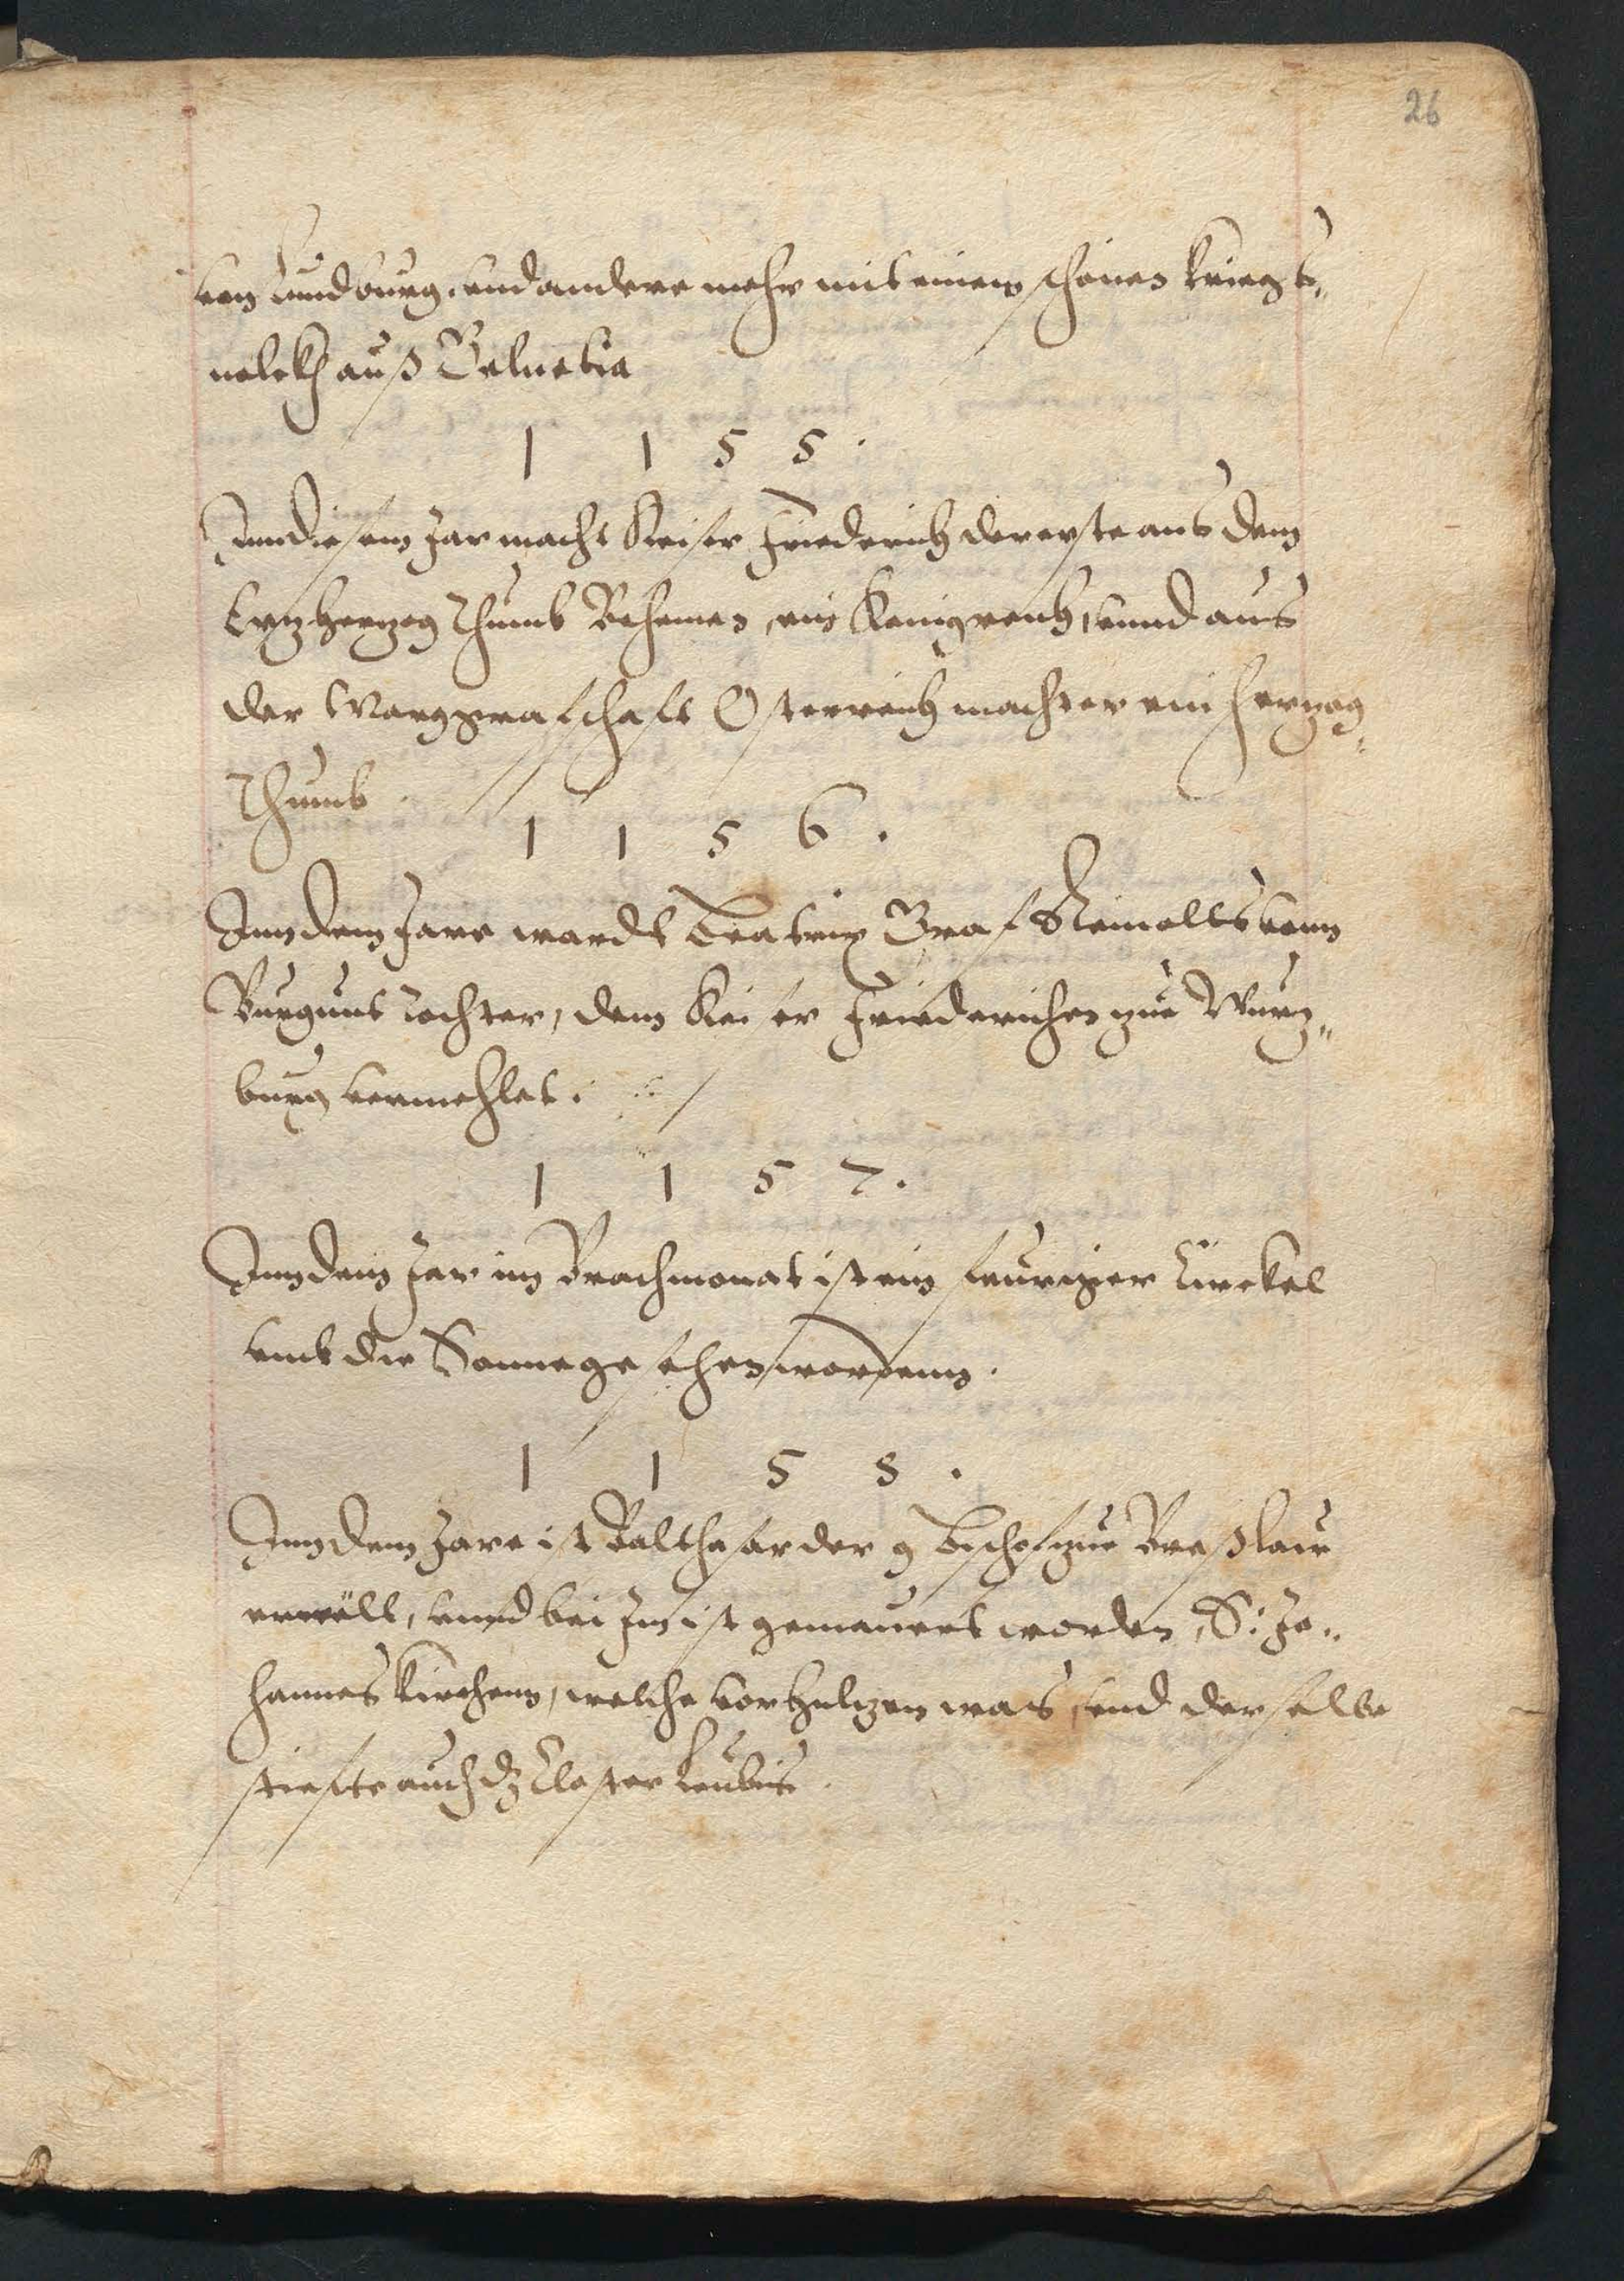 26
von Lundburg. und andere mehr mit einem schönen kriegs„
volckh auß Veluetia
1 1 5 5 .
Inn diesem Jar macht Keiser Friederich der erste aus dem
Ertzhertzog Thumb Behemen, ein Kenigreich, unnd aus
der Marggrafschafft Osterreich macht er ein hertzog„
Thumb .
1 1 5 6 .
Inn dem Jare wardt Beatrix Graf Reinolts vonn
Burgunt Tochter, dem Keiser Friederichen zue Wurtz„
burg vermehlet .
1 1 5 7 .
Inn dem Jar im Brachmonat ist ein feuriger Circkel
umb die Sonne gesehen wordenn .
1 1 5 8 .
Inn dem Jare ist Balthasar der 9 Bischof zue Breßlau
erwält, unnd bei Im ist gemauert worden, S: Jo„
hannes Kirchenn, welche vor hultzen was, und derselbe
stiefte auch dz Closter Leubus .